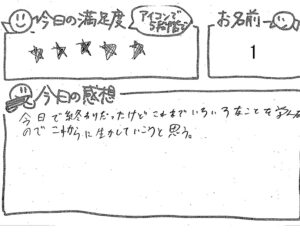 今日の満足度
アイコンで
5段階で
お名前
★★★★★
1
今日の感想
今日で終わりだったけどこれまでいろいろなことを学んだ
のでこれからに生かしていこうと思う。